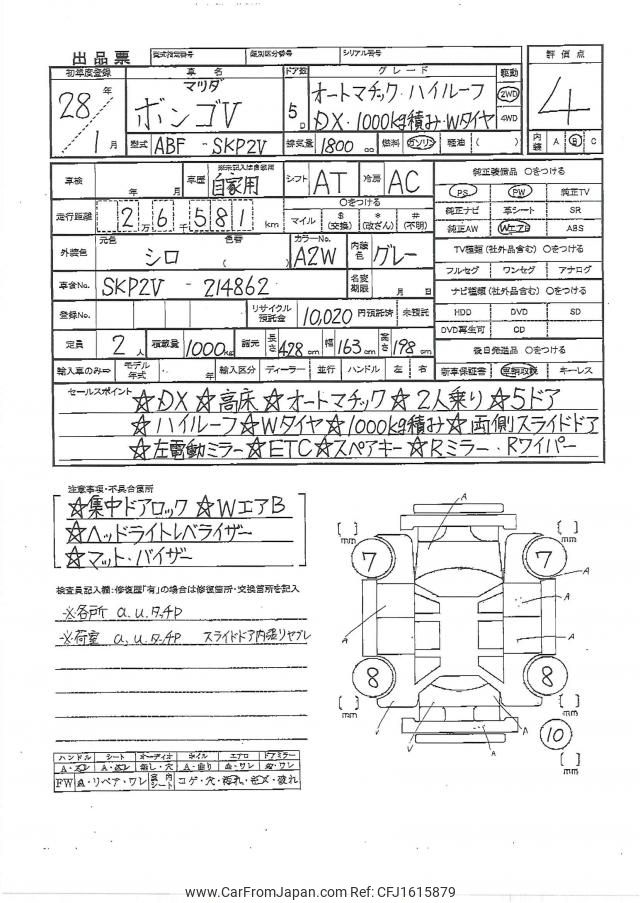 出品票 型式指定番号 類別区分番号 シリアル番号
初年度登録 車名 ドア数 グレード 駆動 評価点
28年 1月
マツダ ボンゴV
5D
オートマチック・ハイルーフ
DX・1000kg積み・Wタイヤ
2WD
4WD
4
型式 ABF - SKP2V 排気量 1800 cc 燃料 ガソリン 軽油 ( )
内装 A B C
車検 年 月 車歴 ※未記入は自家用 自家用 シフト AT 冷房 AC
純正装備品 〇をつける
PS PW 純正TV
走行距離 2 万 6 千 5 8 1 km 〇をつける
マイル $(交換) *(改ざん) #(不明)
純正ナビ 革シート SR
純正AW WエアB ABS
外装色 元色 シロ 色替 ( ) カラーNo. A2W 内装色 グレー
TV種類(社外品含む) 〇をつける
フルセグ ワンセグ アナログ
車台No. SKP2V - 214862 名変期限 月 日
ナビ種類(社外品含む) 〇をつける
登録No. リサイクル預託金 10,020 円預託済 未預託
HDD DVD SD
DVD再生可 CD
定員 2人 積載量 1000kg 諸元 長さ 428cm 幅 163cm 高さ 198cm
後日発送品 〇をつける
輸入車のみ⇒ モデル年式 年 輸入区分 ディーラー 並行 ハンドル 左 右
新車保証書 車輌取説 キーレス
セールスポイント
☆DX☆高床☆オートマチック☆2人乗り☆5ドア
☆ハイルーフ☆Wタイヤ☆1000kg積み☆両側スライドドア
☆左電動ミラー☆ETC☆スペアキー☆Rミラー・Rワイパー
注意事項・不具合箇所
☆集中ドアロック☆WエアB
☆ヘッドライトレベライザー
☆マット・バイザー
検査員記入欄:修復歴「有」の場合は修復箇所・交換箇所を記入
※各所 a.u.タッチP
※荷室 a.u.タッチP スライドドア内張リヤブレ
[ ] mm 7 A 7 [ ] mm
A A A A
[ ] mm 8 8 [ ] mm
A A 10 [ ] mm
ハンドル シート オーディオ ホイル エアロ ドアミラー
FW A・リペア・ワレ 室内シート コゲ・穴・汚れ・キズ・破れ
www.CarFromJapan.com Ref: CFJ1615879